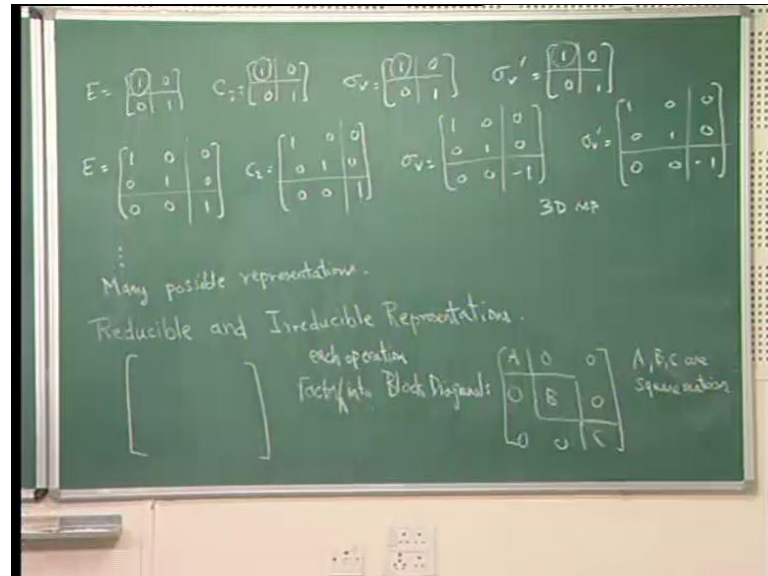 E = [1 0 C₂ = [1 0 σᵥ = [1 0 σᵥ' = [1 0
0 1] 0 1] 0 1] 0 1]
E = [1 0 0 C₂ = [1 0 0 σᵥ = [1 0 0 σᵥ' = [1 0 0
0 1 0 0 1 0 0 1 0 0 1 0
0 0 1] 0 0 1] 0 0 -1] 0 0 -1]
3D rep
⋮
Many possible representations.
Reducible and Irreducible Representations.
each operation
Factor into Block Diagonals
[A 0 0
0 B 0
0 0 C]
A, B, C are
square matrices